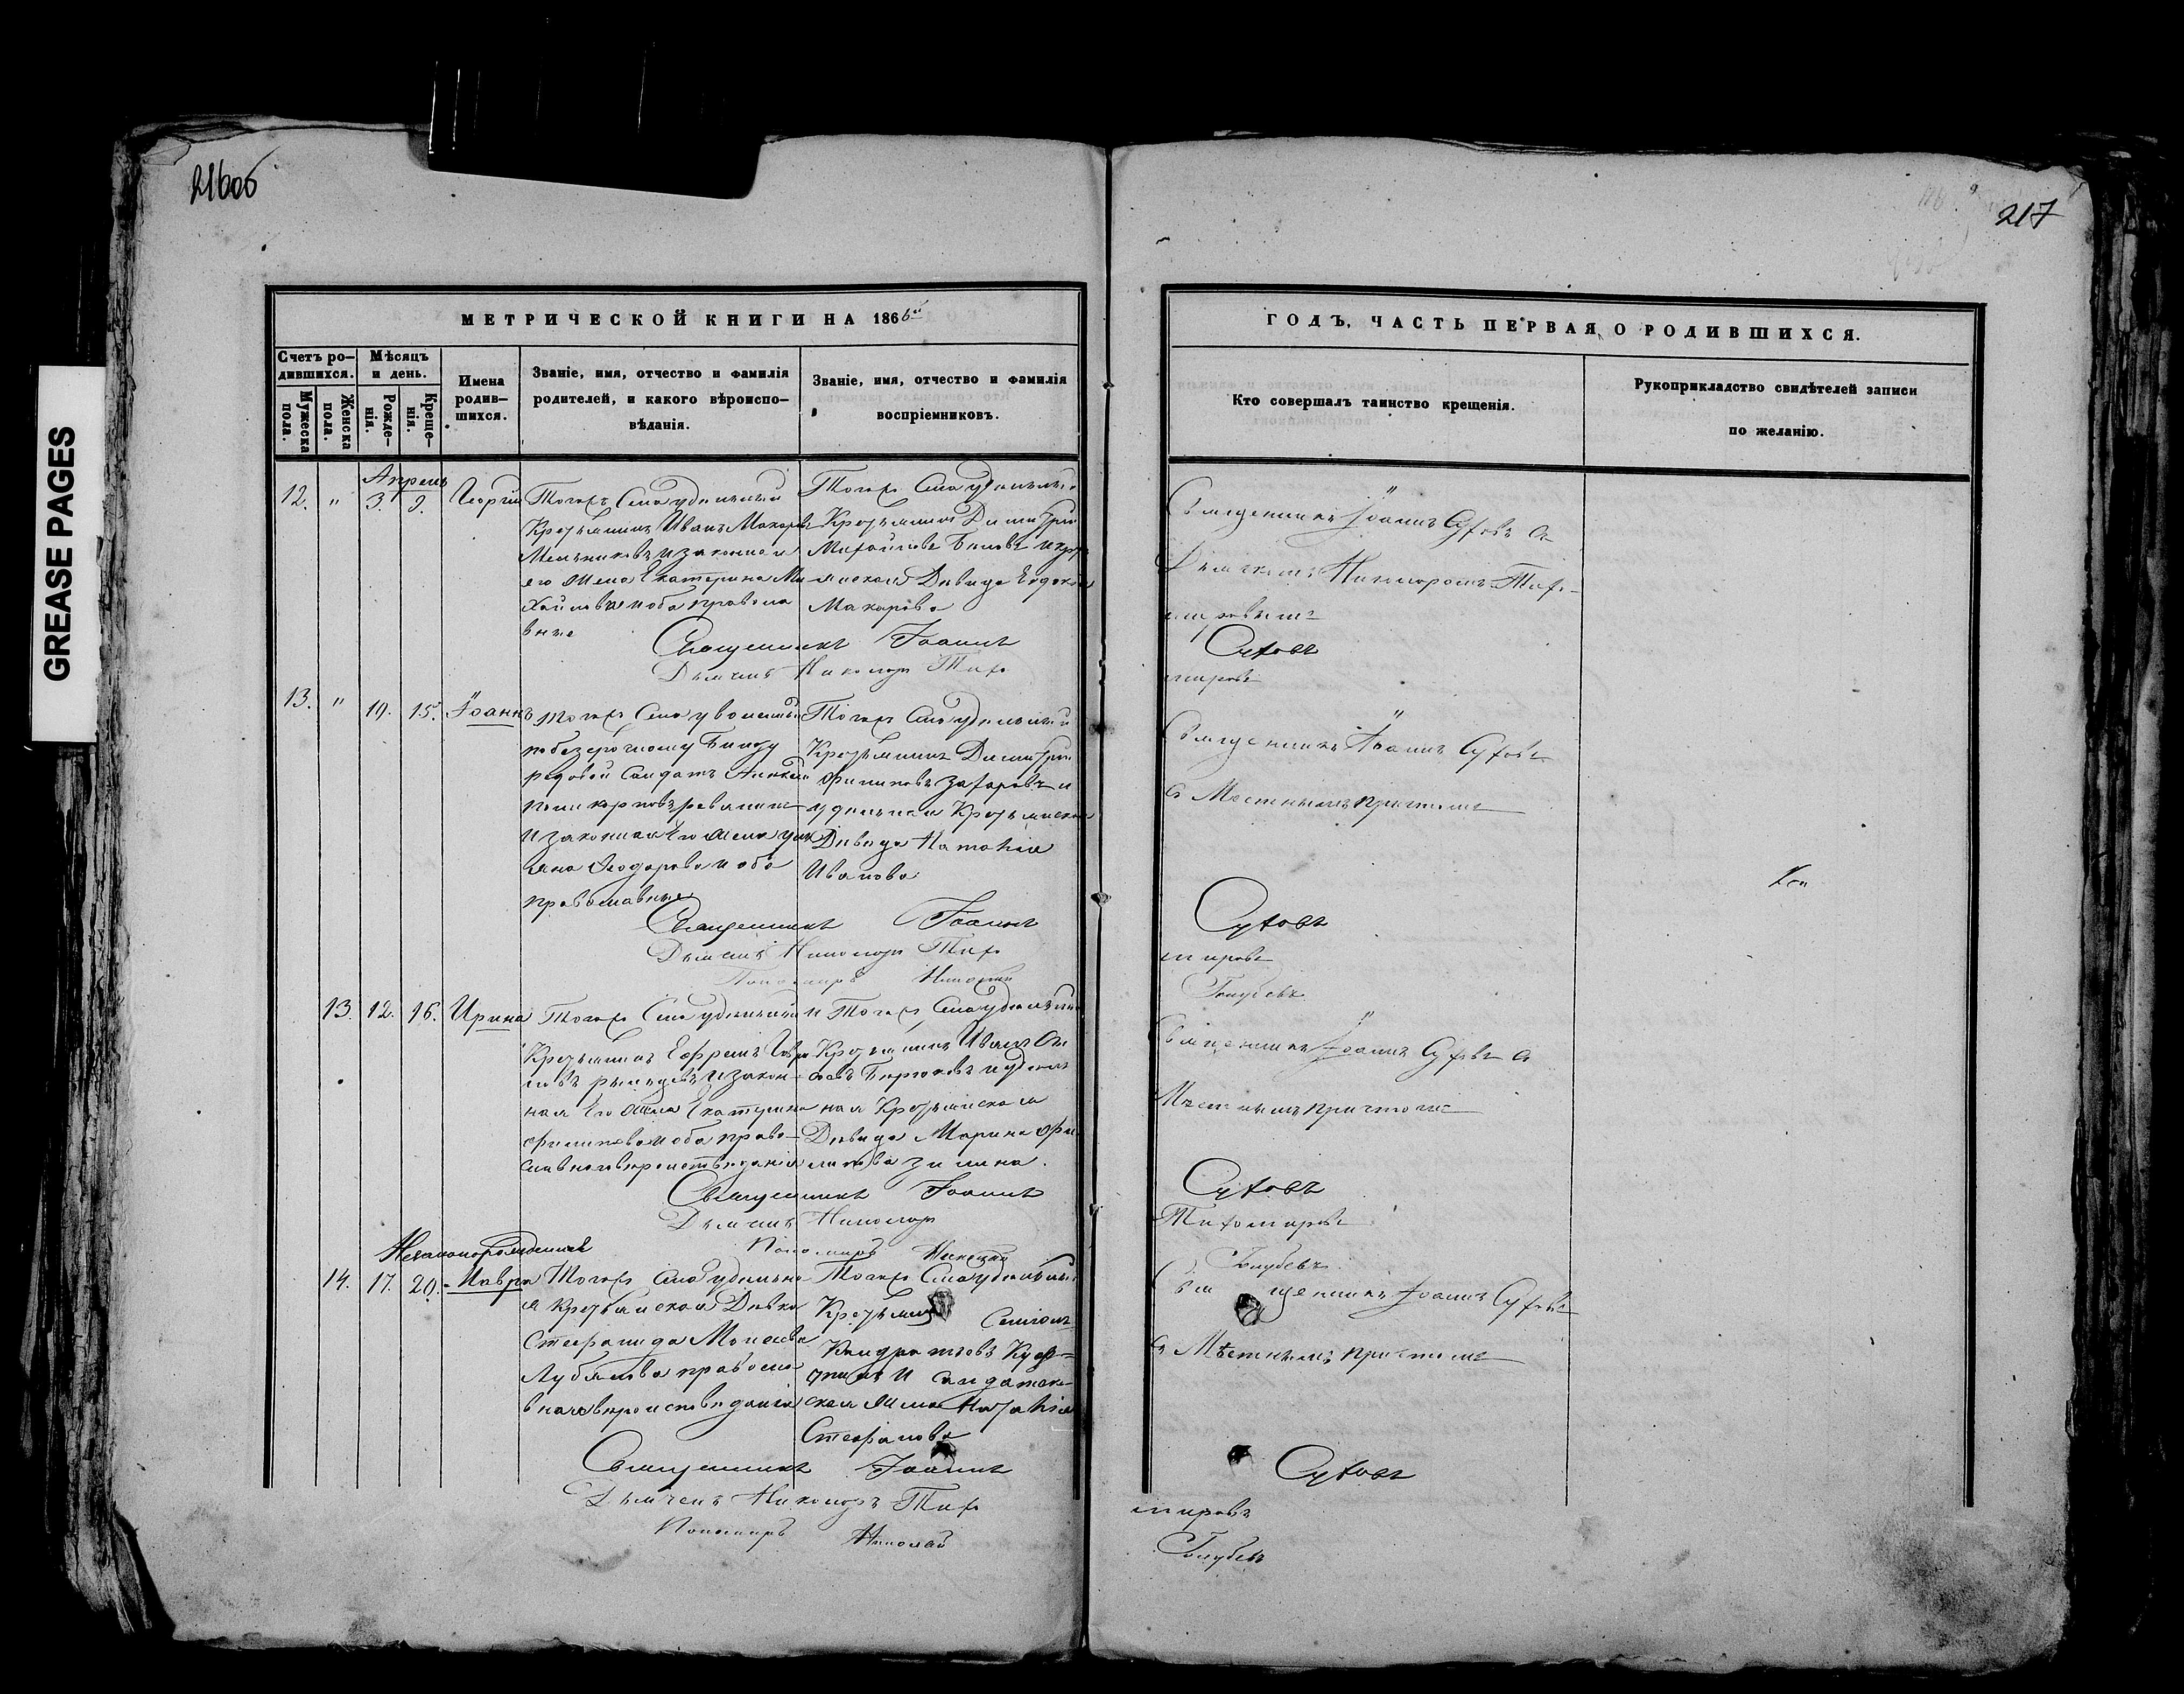 216об
217
GREASE PAGES
МЕТРИЧЕСКОЙ КНИГИ НА 1866й
ГОДЪ, ЧАСТЬ ПЕРВАЯ, О РОДИВШИХСЯ.
Счетъ ро-
дившихся.
Мужеска
пола.
Женска
пола.
Мѣсяцъ
и день.
Рожде-
нія.
Креще-
нія.
Имена
родив-
шихся.
Званіе, имя, отчество и фамилія
родителей, и какого вѣроиспо-
вѣданія.
Званіе, имя, отчество и фамилія
воспріемниковъ.
Кто совершалъ таинство крещенія.
Рукоприкладство свидѣтелей записи
по желанію.
Апрель
12. " 3. 9. Георгій
Тогожъ Села удельный
Крестьянинъ Иванъ Макаровъ
Мельниковъ и законная
его жена Екатерина Ми-
хайлова оба правосла
вные
Тогожъ Села удельный
Крестьянинъ Димитрій
Михайловъ Бѣловъ и кре
Девица
Макарова
Священникъ Іоаннъ Суховъ съ
Дьячкомъ Никаноромъ Тихо-
мировымъ
Священникъ Іоаннъ Суховъ
Дьячекъ Никаноръ Тихо
мировъ
13. " 10. 15. Іоаннъ
Тогожъ Села уволенный
по безсрочному билету
рядовой Солдатъ
и законная Его жена
Феодорова оба
православные
Тогожъ Села удельный
Крестьянинъ Димитрій
Филиповъ Захаровъ и
удельная Крестьянская
Девица Наталія
Иванова
Священникъ Іоаннъ Суховъ
съ Местнымъ причтомъ
Священникъ Іоаннъ Суховъ
Дьячекъ Никаноръ Тихо
мировъ
Пономарь Николай Голубевъ
13. 12. 16. Ирина
Тогожъ Села удельный
Крестьянинъ Ефремъ
и закон-
ная Его жена Екатерина
Филипова оба право-
славнаго вероисповеданія
Тогожъ Села удельный
Крестьянинъ Иванъ
Бирюковъ и удель
ная Крестьянская
Девица Марина Фи
липова Зилина.
Священникъ Іоаннъ Суховъ съ
Местнымъ причтомъ
Священникъ Іоаннъ Суховъ
Дьячекъ Никаноръ Тихомировъ
Пономарь Николай Голубевъ
Незаконорожденная
14. 17. 20. Мавра
Тогожъ Села удельна
я крестьянская Девка
Стефанида Моисеева
правосла
внаго вероисповеданія
Тогожъ Села удельный
Крестьянинъ Семіонъ
Кандратьевъ
и солдатск
ская жена Наталія
Стефанова
Священникъ Іоаннъ Суховъ
съ Мѣстнымъ причтомъ
Священникъ Іоаннъ Суховъ
Дьячекъ Никаноръ Тихо
мировъ
Пономарь Николай
Голубевъ